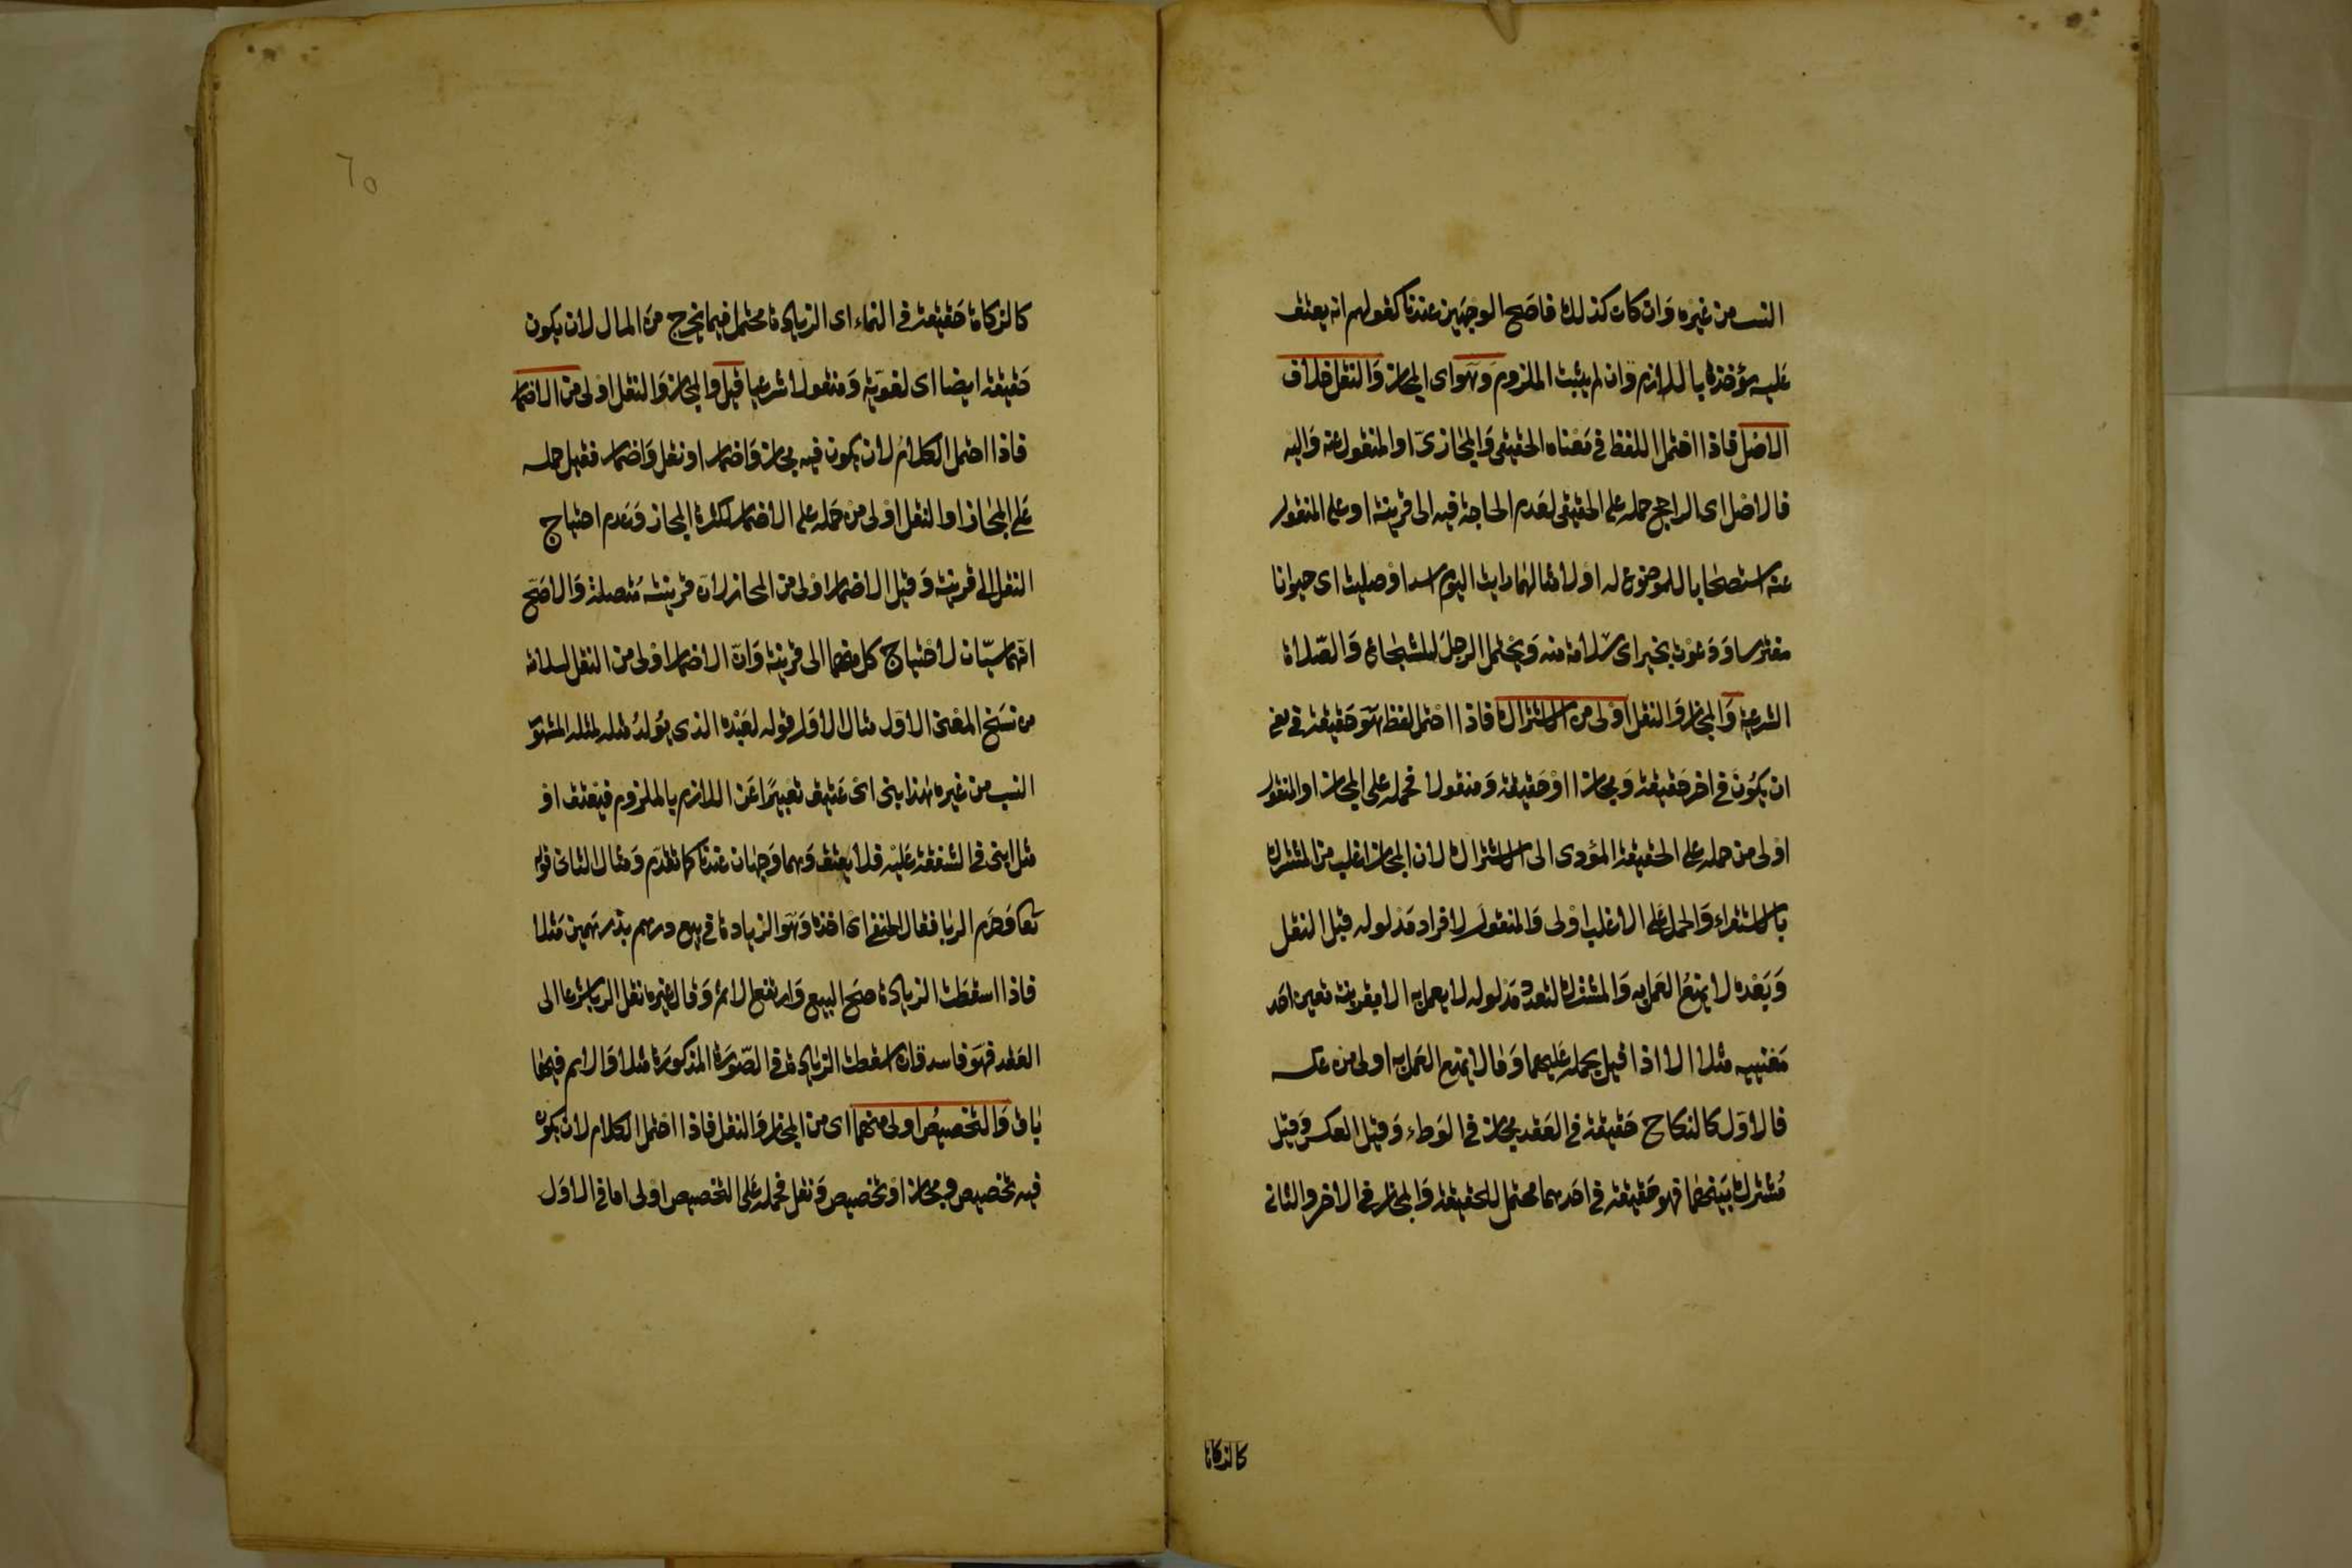 النسب من غيره وان كان كذلك فاصح الوجهين عندنا كقولهم انه يعتق
عليه مؤخذة باللازم وان لم يثبت الملزوم وهو اى المجاز والنقل خلاف
الاصل فاذا احتمل اللفظ فى معناه الحقيقى والمجازىّ او المنقول عنه واليه
فالاصل اى الراجح حمله على الحقيقى لعدم الحاجة فيه الى قرينة او على المنقول
عنه استصحابا للموضوع له اولا مثالهما رايت اليوم اسدا او صليت اى حيوانا
مفترسا ودعوت بخير اى سلامة منه ويحتمل الرجل الشجاع والصّلاة
الشرعية والمجاز والنقل اولى من الاشتراك فاذا احتمل لفظ هو حقيقة فى معنى
ان يكون فى اخر حقيقة ومجازا او حقيقة ومنقولا فحمله على المجاز او المنقول
اولى من حمله على الحقيقة المؤدى الى الاشتراك لان المجاز اغلب من المشترك
بالاستقراء والحمل على الاغلب اولى والمنقول لافراد مدلوله قبل النقل
وبعده لا يمتنع العمل به والمشترك لتعدد مدلوله لا يعمل به الا بقرينة تعين احد
معنييه مثلا الا اذا قيل بحمله عليهما وما لا يمتنع العمل به اولى من عكسه
فالاوّل كالنكاح حقيقة فى العقد مجاز فى الوطء وقيل العكس وقيل
مشترك بينهما فهو حقيقة فى احدهما محتمل للحقيقة والمجاز فى الاخر والثانى
كالزكاة
٦٥
كالزكاة حقيقة فى النماء اى الزيادة محتمل فيما يخرج من المال لان يكون
حقيقة ايضا اى لغويّة ومنقولا شرعيا قيل والمجاز والنقل اولى من الاضمار
فاذا احتمل الكلام لان يكون فيه مجاز واضمار او نقل واضمار فقيل حمله
على المجاز او النقل اولى من حمله على الاضمار لكثرة المجاز وعدم احتياج
النقل الى قرينة وقيل الاضمار اولى من المجاز لان قرينته متصلة والاصح
انهما سيّان لاحتياج كل منهما الى قرينة وان الاضمار اولى من النقل لسلامته
من نسخ المعنى الاول مثال الاول قوله لعبده الذى يولد مثله لمثله المشهور
النسب من غيره هذا ابنى اى عتيق تعبيرا عن اللازم بالملزوم فيعتق او
مثل ابنى فى الشفقة عليه فلا يعتق وهما وجهان عندنا كما تقدم ومثال الثانى قوله
تعا وحرم الربا فقال الحنفى اى اخذه وهو الزيادة فى بيع درهم بدرهمين مثلا
فاذا اسقطت الزيادة صح البيع وارتفع الاثم وقال غيره نقل الربا شرعا الى
العقد فهو فاسد وان اسقطت الزيادة فى الصّورة المذكورة مثلا والاثم فيها
باق والتخصيص اولى منهما اى من المجاز والنقل فاذا احتمل الكلام لان يكون
فيه تخصيص ومجاز او تخصيص ونقل فحمله على التخصيص اولى اما فى الاول